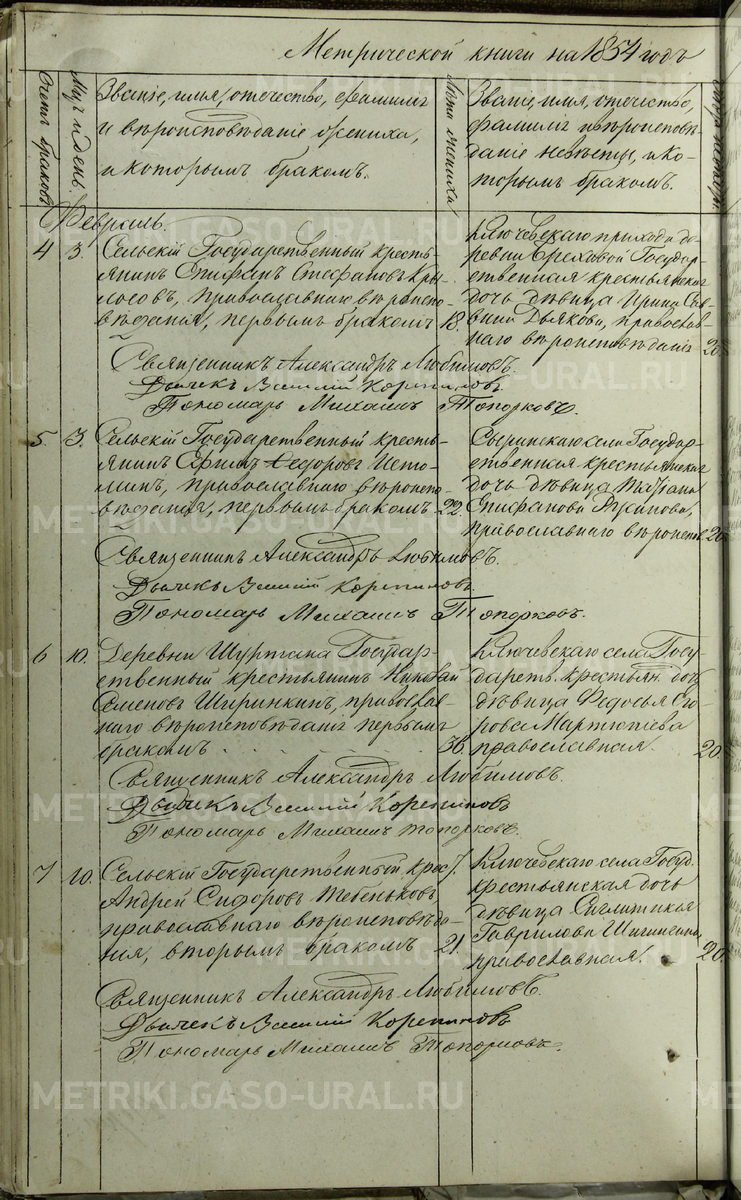 Метрической книги на 1854 годъ
Счетъ браковъ
Мѣс. и день.
Званіе, имя, отечество, фамилія
и вѣроисповѣданіе жениха,
и которымъ бракомъ.
Лѣта жениха
Званіе, имя, отечество,
фамилія и вѣроисповѣ-
даніе невѣсты, и ко-
торымъ бракомъ.
Февраль.
4
3.
Сельскій Государственный кресть-
янинъ Епифанъ
православнаго вѣроиспо-
вѣданія, первымъ бракомъ
18.
Ключевскаго прихода де-
ревни Государ-
ственная крестьянская
дочь дѣвица Ирина Сав-
вина Дьякова, православ-
наго вѣроисповѣданія
20.
Священникъ Александръ Любимовъ.
Дьячекъ Василій Корепиновъ
Пономарь Михаилъ Топорковъ.
5
3.
Сельскій Государственный кресть-
янинъ Ефимъ Ѳедоровъ Исто-
минъ, православнаго вѣроиспо-
вѣданія, первымъ бракомъ
22.
села Государ-
ственная крестьянская
дочь дѣвица Татіана
Епифанова Русинова,
православнаго вѣроиспов.
20.
Священникъ Александръ Любимовъ.
Дьячекъ Василій Корепиновъ.
Пономарь Михаилъ Топорковъ.
6
10.
Деревни Шуртана Государ-
ственный крестьянинъ Николай
Семеновъ Ширинкинъ, православ-
наго вѣроисповѣданія первымъ
бракомъ
36.
Ключевскаго села Госу-
дарств. крестьян. дочь
дѣвица Федосья
Мартюшева
православная.
20.
Священникъ Александръ Любимовъ.
Дьячикъ Василій Корепиновъ
Пономарь Михаилъ Топорковъ.
7
10.
Сельскій Государственный крест.
Андрей Сидоровъ Тебеньковъ
православнаго вѣроисповѣда-
нія, вторымъ бракомъ
21.
Ключевскаго села Госуд.
крестьянская дочь
дѣвица
Гаврилова
православная.
20.
Священникъ Александръ Любимовъ.
Дьячекъ Василій Корепиновъ
Пономарь Михаилъ Топорковъ.
METRIKI.GASO-URAL.RU